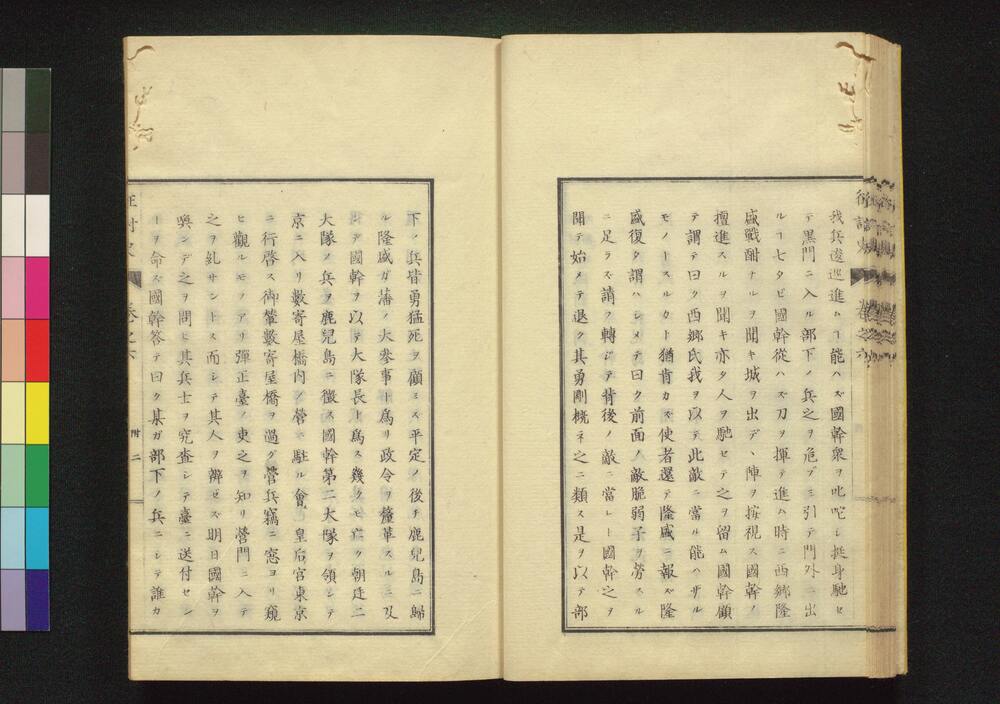 我兵逡巡進ムヿ能ハズ國幹衆ヲ叱咤シ挺身馳セ
テ黒門ニ入ル部下ノ兵之ヲ危ブミ引テ門外ニ出
ルヿ七タビ國幹從ハズ刀ヲ揮テ進ム時ニ西郷隆
盛戰酣ナルヲ聞キ城ヲ出デヽ陣ヲ按視ス國幹ノ
擅進スルヲ聞キ亦タ人ヲ馳セテ之ヲ留ム國幹顧
テ謂テ曰ク西郷氏我ヲ以テ此敵ニ當ル能ハザル
モノトスルカト猶肯カズ使者還テ隆盛ニ報ズ隆
盛復タ謂ハシメテ曰ク前面ノ敵脆弱子ヲ勞スル
ニ足ラズ請フ轉ジテ背後ノ敵ニ當レト國幹之ヲ
聞テ始メテ退ク其勇剛概ネ之ニ類ス是ヲ以テ部
下ノ兵皆勇猛死ヲ顧ミズ平定ノ後チ鹿兒島ニ歸
ル隆盛ガ藩ノ大參事ト爲リ政令ヲ釐革スルニ及
ンデ國幹ヲ以テ大隊長ト爲ス幾クモ亡ク朝廷二
大隊ノ兵ヲ鹿兒島ニ徴ス國幹第二大隊ヲ領シテ
京ニ入リ數寄屋橋内ノ營ニ駐ル會〻皇后宮東京
ニ行啓ス御輦數寄屋橋ヲ過グ營兵竊ニ窓ヨリ窺
ヒ觀ルモノアリ彈正臺ノ吏之ヲ知リ營門ニ入テ
之ヲ糺サントス而シテ其人ヲ辨ゼズ明日國幹ヲ
喚ンデ之ヲ問ヒ其兵士ヲ究査シテ臺ニ送付セン
ヿヲ命ズ國幹答テ曰ク某ガ部下ノ兵ニシテ誰カ
卷之六 附 二